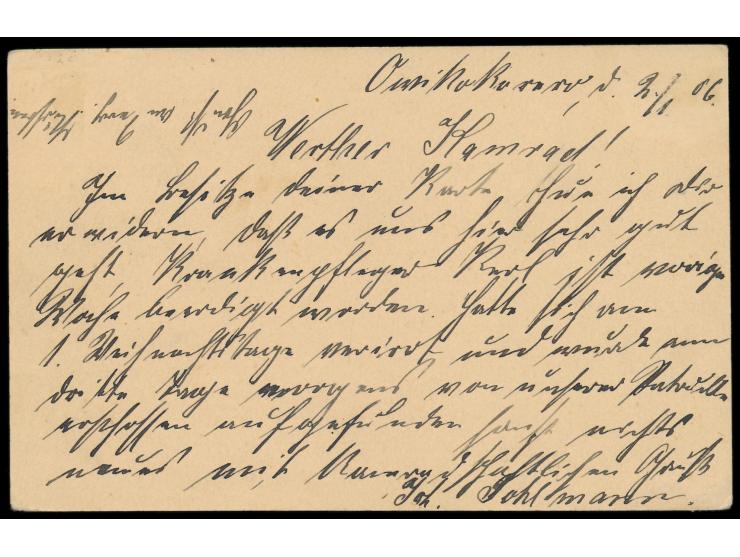 Owikokorero, d. 2./1. 06.
Werther Kamrad!
Im Besitze deiner Karte thue ich dir
erwidern, daß es uns hier sehr gut
geht, Krankenpfleger Kerl ist vorige
Woche beerdigt worden. Hatte sich am
1. Weihnachtstage verirrt und wurde am
dritte Tage morgens von unserer Patrulle
erschossen aufgefunden sonst nichts
neues mit Kamradschaftlichen Gruß
Joh. Pohlmann.